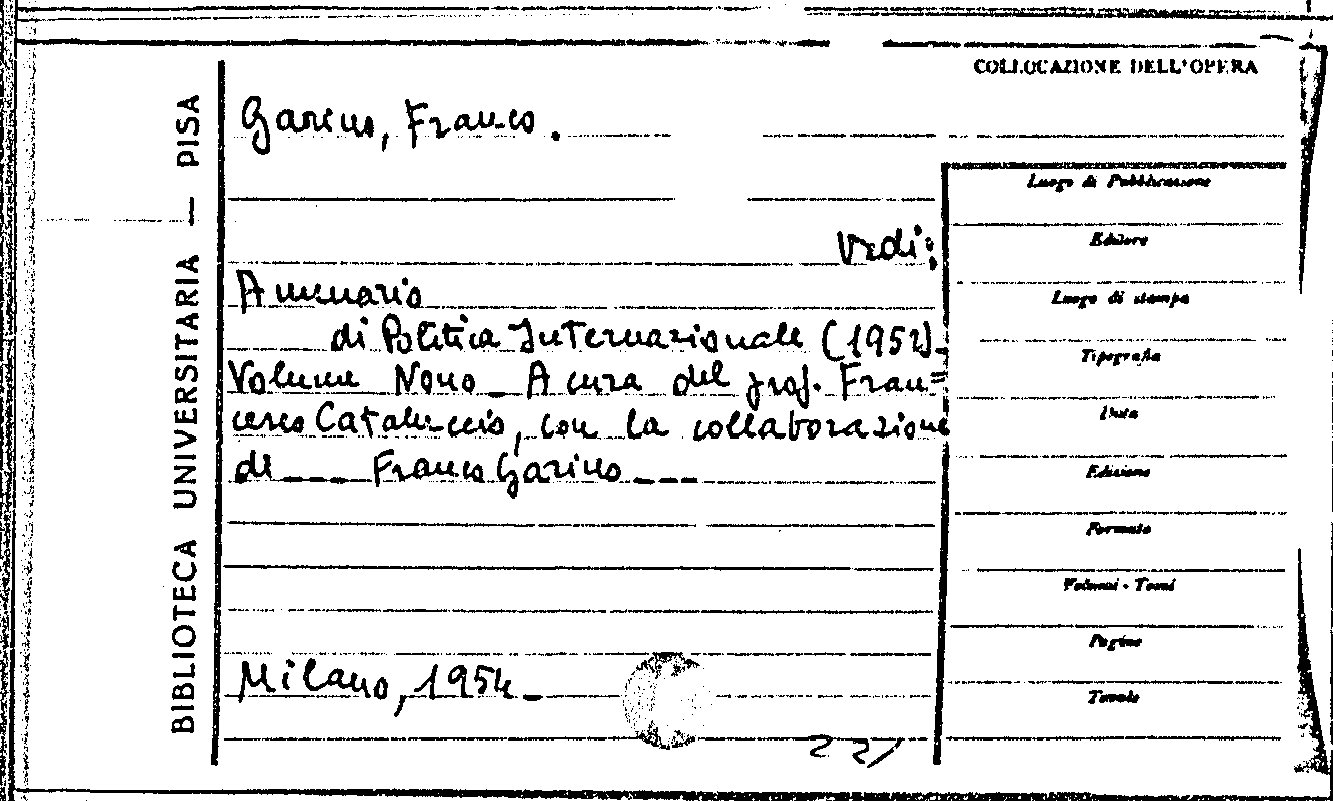 COLLOCAZIONE DELL'OPERA
BIBLIOTECA UNIVERSITARIA — PISA
Garino, Franco.
Vedi:
Annuario
di Politica Internazionale (1952)_
Volume Nono _ A cura del prof. Fran=
cesco Cataluccio, con la collaborazione
di _ _ _ Franco Garino _ _ _
Milano, 1954_
Luogo di Pubblicazione
Editore
Luogo di stampa
Tipografia
Data
Edizione
Formato
Volumi - Tomi
Pagine
Tavole